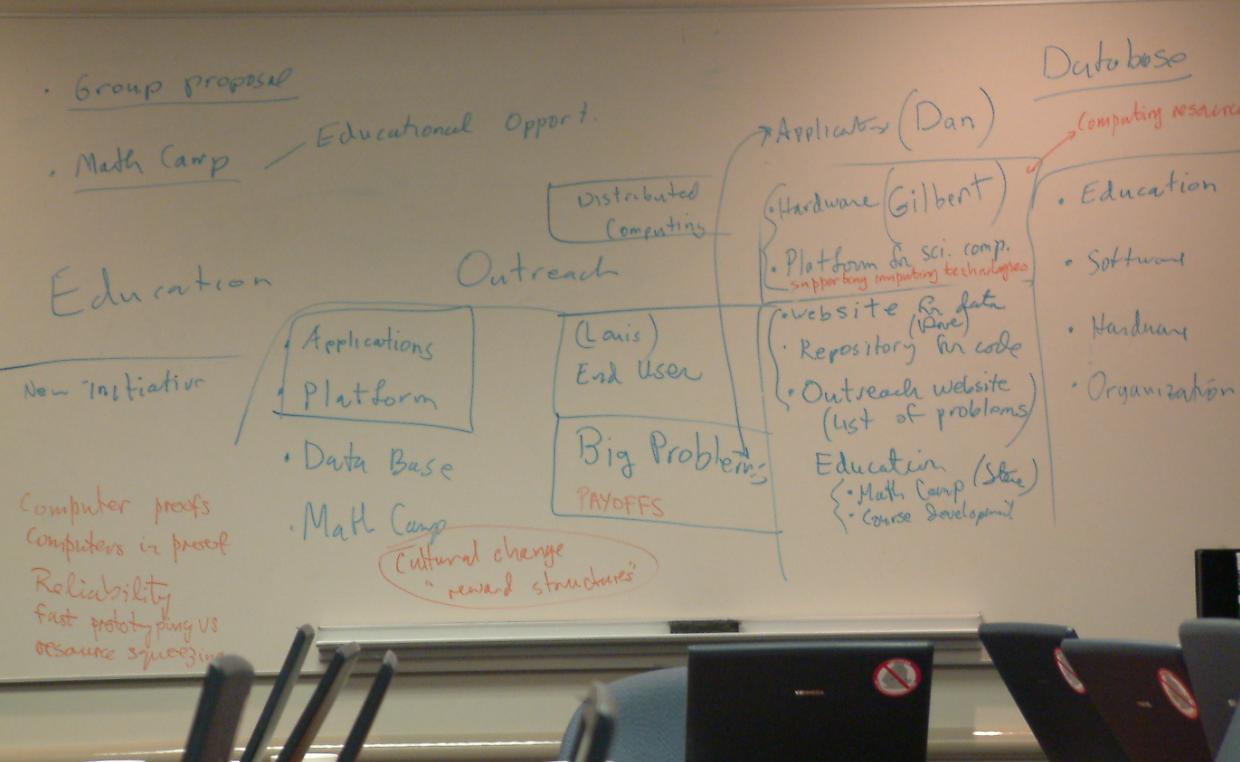 • Group proposal
• Math Camp
Educational Opport.
Education
New initiative
Computer proofs
Computers in proof
Reliability
fast prototyping vs
resource squeezing
Outreach
• Applications
• Platform
• Data Base
• Math Camp
Cultural change
"reward structures"
Distributed
Computing
(Louis)
End User
Big Problems
PAYOFFS
(Dan)
• Hardware (Gilbert)
• Platform for sci. comp.
supporting computing technologies
• website for data
• Repository for code
• Outreach website
(list of problems)
Education
• Math Camp
• Course development
Database
Computing resource
• Education
• Software
• Hardware
• Organization